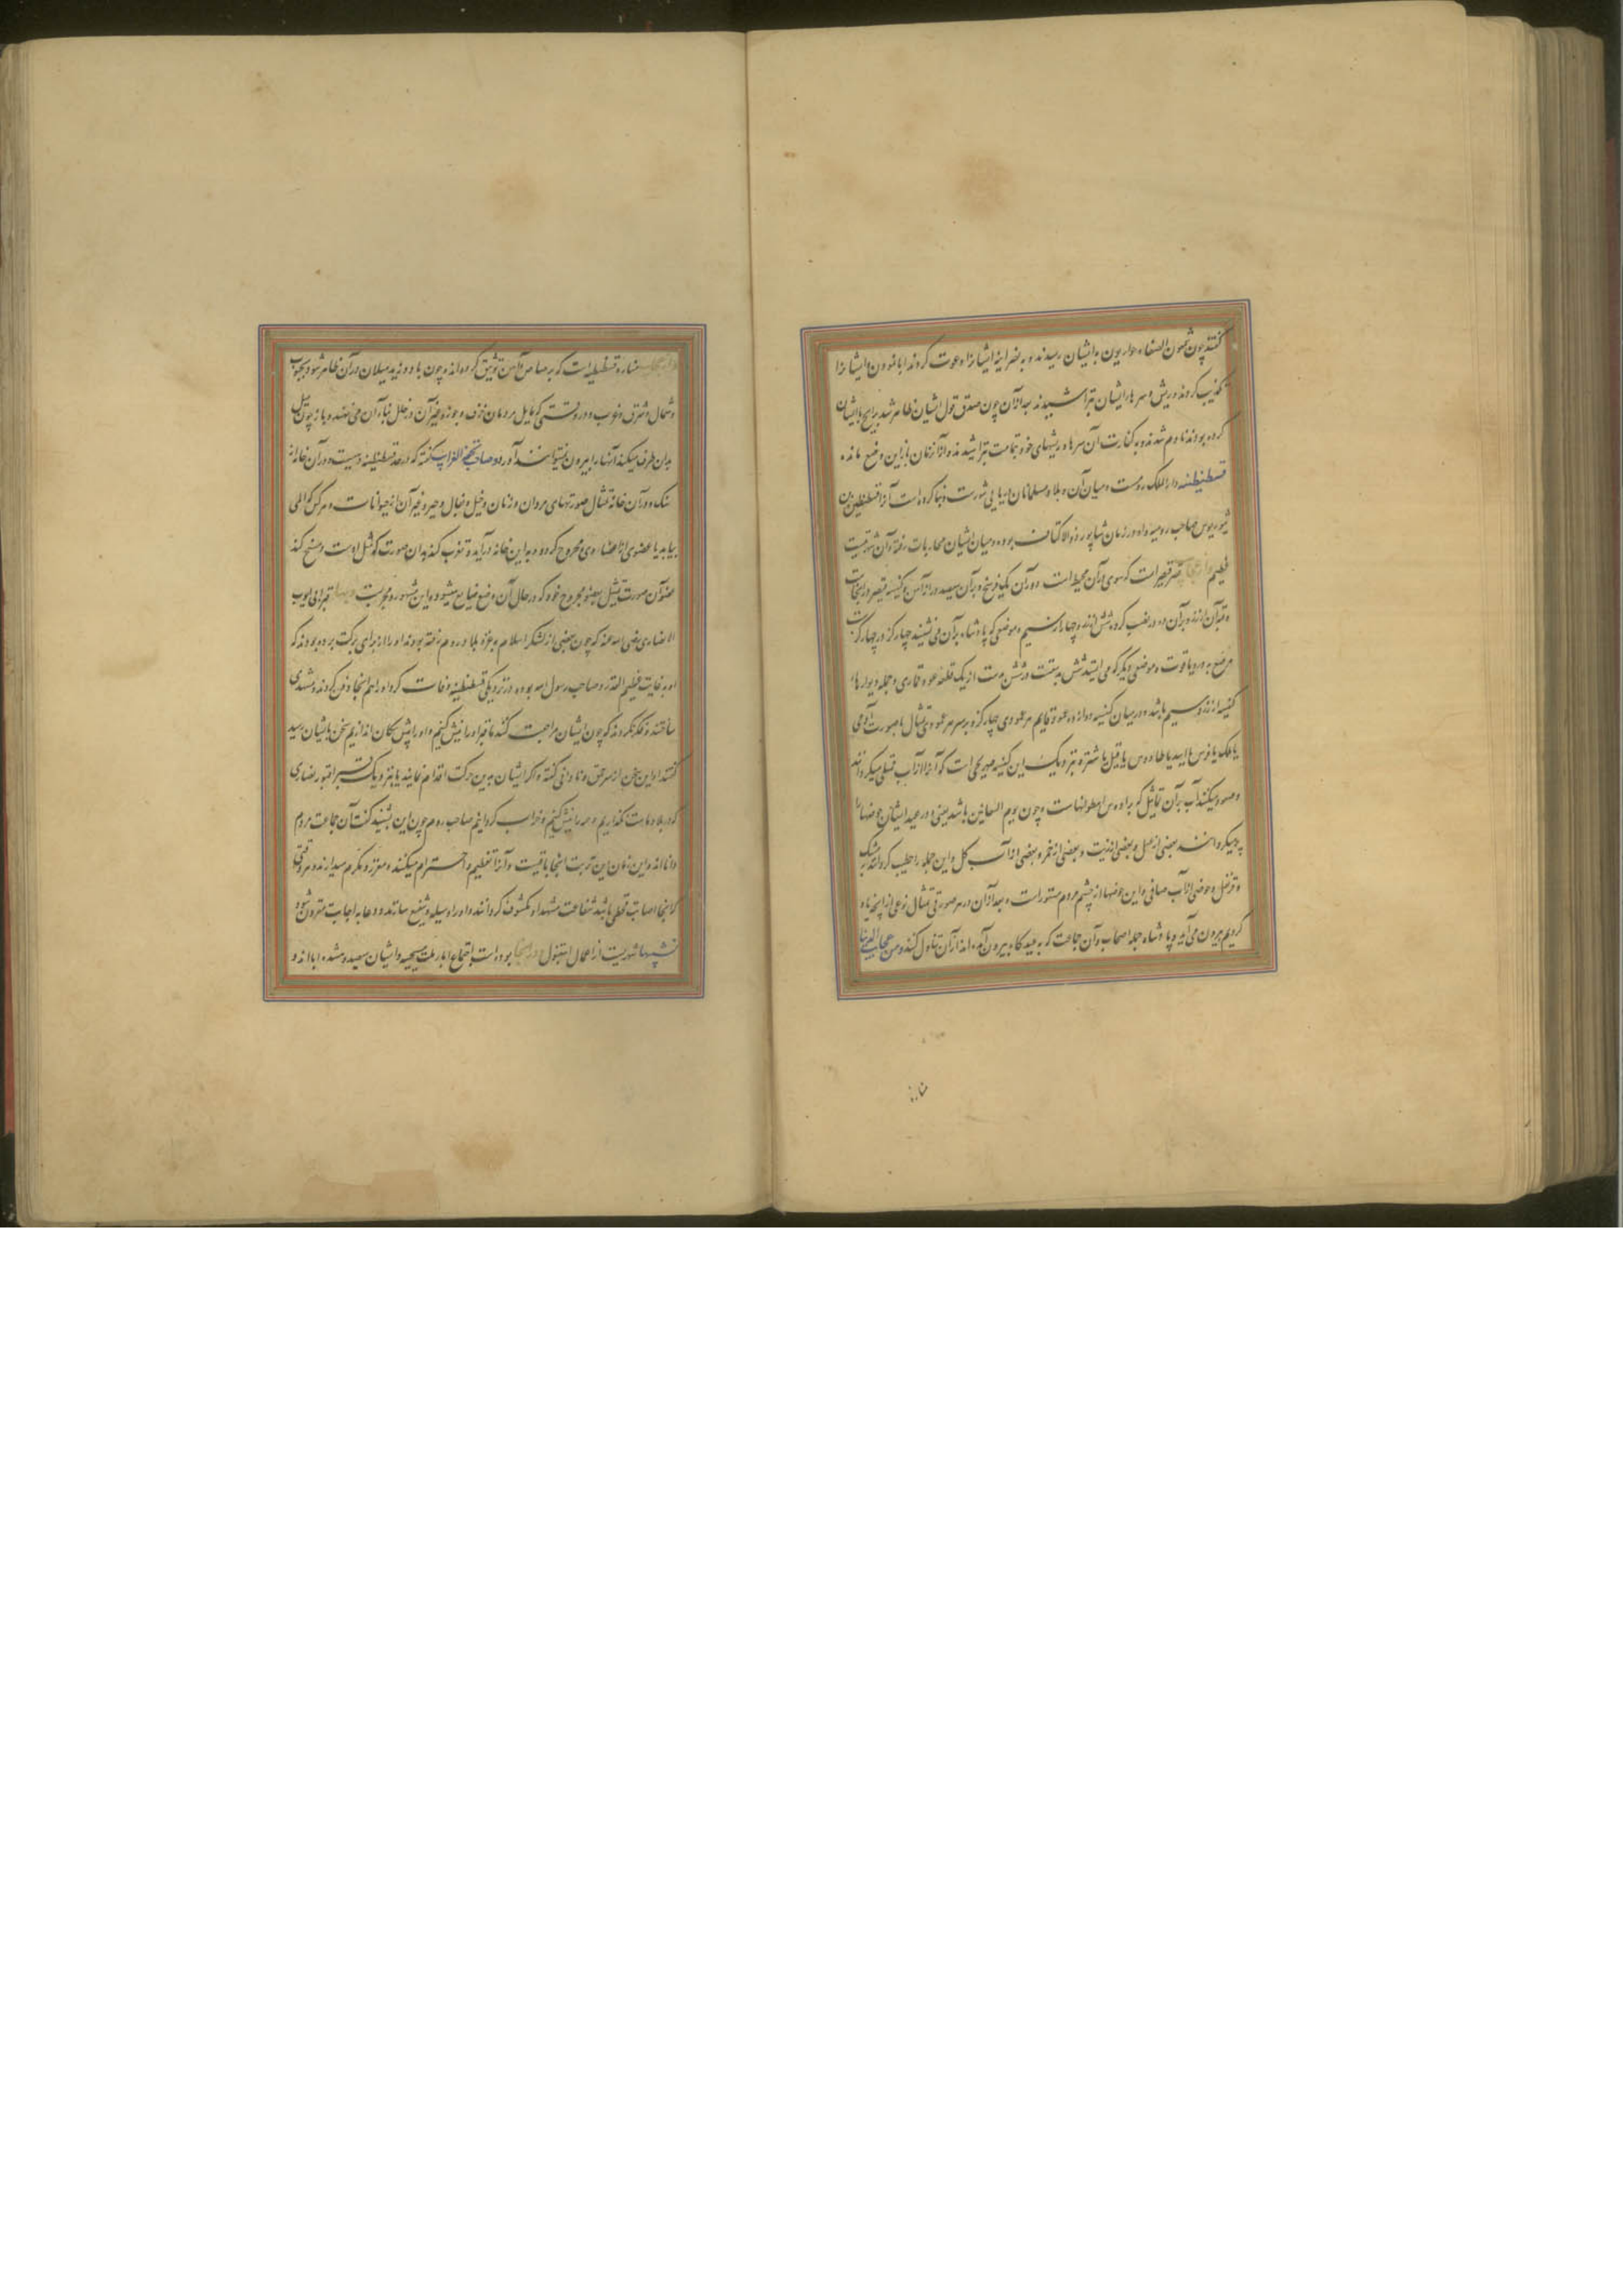 گفتند چون شمعون الصفا و حواریون به ایشان رسیدند و به نصرانیه ایشانرا دعوت کردند ابا نمودن و ایشانرا
تکذیب کردند و ریش و سرها ایشان بتراشیدند بعد از آن چون صدق قول ایشان ظاهر شد برانچ با ایشان
کرده بودند نادم شدند و به کفارت آن سرها و ریشهای خود بتمامت بتراشیدند و از آن زمان باز این وضع مانده
قسطنطنیه دار الملک روم است و میان آن و بلاد مسلمانان دریایی شورست و بنا کرده است آنرا قسطنطین بن
صاحب رومیه و او در زمان شاپور ذوالاکتاف بوده و میان ایشان محاربات رفته و آن شهریست
عظیم و از عجایب قصر قیصر است که سوری بر آن محیط است دور آن یک فرسخ و بر آن سیصد در از آهن و کنیسه قیصر در اینجاست
و قبه آن از زر و بر آن ده در نصب کرده شش از زر و چهار از سیم و موضعی که پادشاه بر آن می نشیند چهار گز در چهار گزست
مرصع به در و یاقوت و موضعی دیگر که می ایستد شش بدست در شش بدست از یک قطعه عود قماری و جمله دیوارها
کنیسه از زر و سیم باشد و در میان کنیسه دوازده عمود قایم هر عمودی چهار گز و بر سر هر عمود تمثال یا صورت آدمی
یا ملک یا فرس یا اسد یا طاوس یا فیل یا شتر و نزدیک این کنیسه صهریجی است که آنرا از آب ممتلی میگردانند
و صعود میکند آب بر آن تماثیل که بر رءوس اسطوانهاست و چون یوم الشعانین باشد یعنی در عید ایشان حوضها را
پر میگردانند بعضی از عسل و بعضی از زیت و بعضی از خمر و بعضی از آب گل و این جمله را مطیب گردانند به مشک
و قرنفل و حوضی از آب صافی و این حوضها از چشم مردم مستورست و بعد از آن در هر صورتی تمثال نوعی از آنچه یاد
کردیم بیرون می آید و پادشاه و جمله اصحاب و آن جماعت که به عیدگاه بیرون آمده اند از آن تناول کنند و من عجایب البنا
مناره
و از عجایب مناره قسطنطنیه است که بر رصاص و آهن توثیق کرده اند و چون باد وزید میلان در آن ظاهر شود به جنوب
و شمال و شرق و غرب و در وقتی که مایل بود مردمان خزف و جوز و غیر آن در خلل بناء آن می نهند و باز چون میل
بدان طرف میکند آنها را بیرون نمیتوانند آورد و صاحب تحفة الغرایب گفته که در حد قسطنطنیه دهیست و در آن خانه از
سنگ و در آن خانه تمثال صورتهای مردان و زنان و خیل و بغال و حمیر و غیر آن از حیوانات و هر کس که المی
بیابد یا عضوی از اعضاء وی مجروح گردد به این خانه درآید و تقرب کند بدان صورت که مثل اوست و مسح کند
عضو آن صورت تمثیل بعضو مجروح خود که در حال آن وضع ضایع میشود و این مشهور و مجربست و بها قبر ابی ایوب
الانصاری رضی الله عنه که چون بعضی از لشکر اسلام به غزو بلاد روم رفته بودند او را از برای برکت برده بودند که
او به غایت عظیم القدر و صاحب رسول الله بوده و در نزدیکی قسطنطنیه وفات کرد او را هم اینجا دفن کردند و مشهدی
ساختند و فکر نکردند که چون ایشان مراجعت کنند ما قبر او را نبش کنیم و او را پیش سگان اندازیم سخن بایشان رسید
گفتند او این سخن از سر حمق و نادانی گفته و اگر ایشان بدین حرکت اقدام نمایند ما نیز و یک قبر از قبور نصاری
که در بلاد ماست نگذاریم و همه را نبش کنیم و خراب گردانیم صاحب روم چون این بشنید گفت آن جماعت مردم
دانا اند و این زمان این تربت اینجا باقیست و آنرا تعظیم و احترام میکنند و معزز و مکرم میدارند و هر وقتی
که اینجا اصابت قحطی باشد شفاعت مشهد او مکشوف گردانند و او را وسیله و شفیع سازند و دعا به اجابت مقرون شود
شهریست از اعمال استنبول در اینجا بوده است اجتماع آباء ملت مسیحیه و ایشان سیصد و هشده آبا اند و